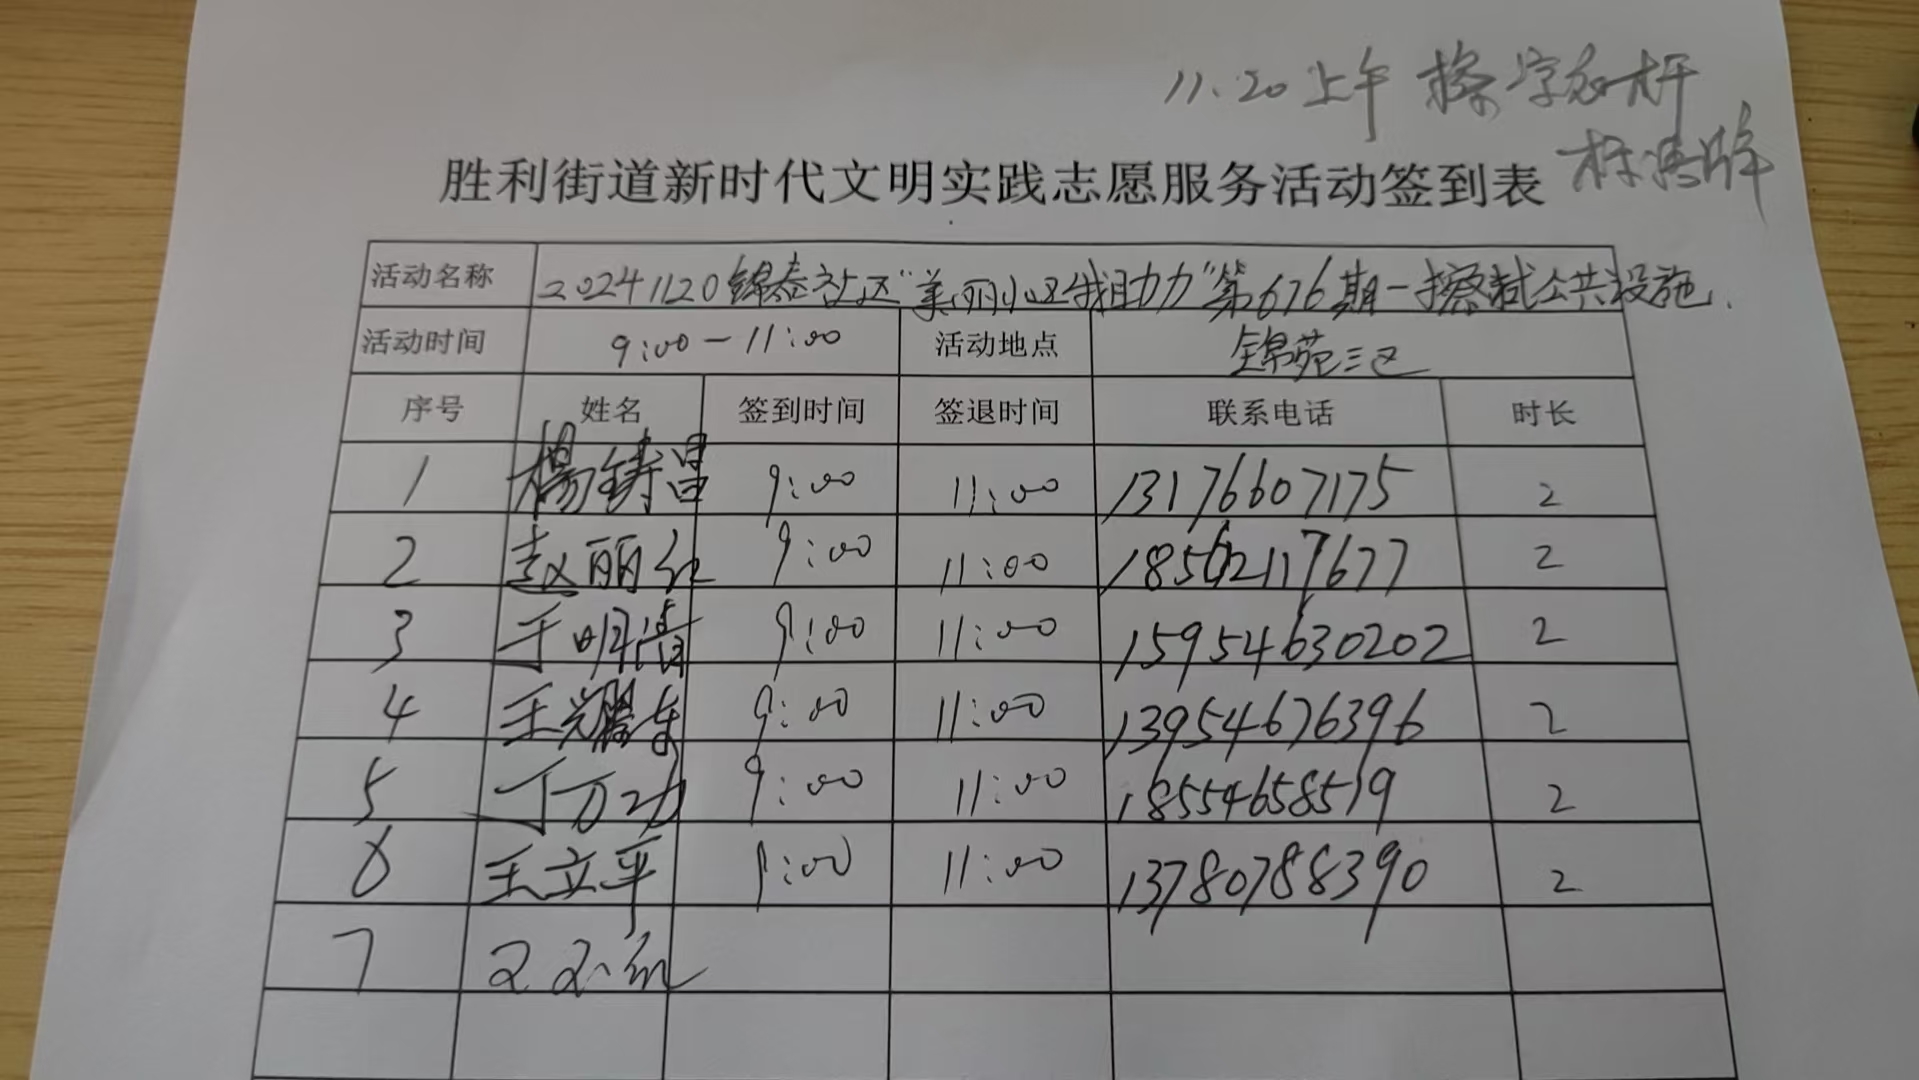 11.20上午 擦宣传栏杆
标语牌
胜利街道新时代文明实践志愿服务活动签到表
活动名称 20241120锦泰社区"美丽小区我助力"第676期-擦拭公共设施.
活动时间 9:00-11:00 活动地点 锦苑三区
序号 姓名 签到时间 签退时间 联系电话 时长
1 杨铸昌 9:00 11:00 13176607175 2
2 赵丽红 9:00 11:00 18562117677 2
3 于明清 9:00 11:00 15954630202 2
4 王耀东 9:00 11:00 13954676396 2
5 丁万功 9:00 11:00 18554658519 2
6 王立平 9:00 11:00 13780788390 2
7